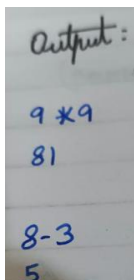 Output:
9 *9
81
8-3
5